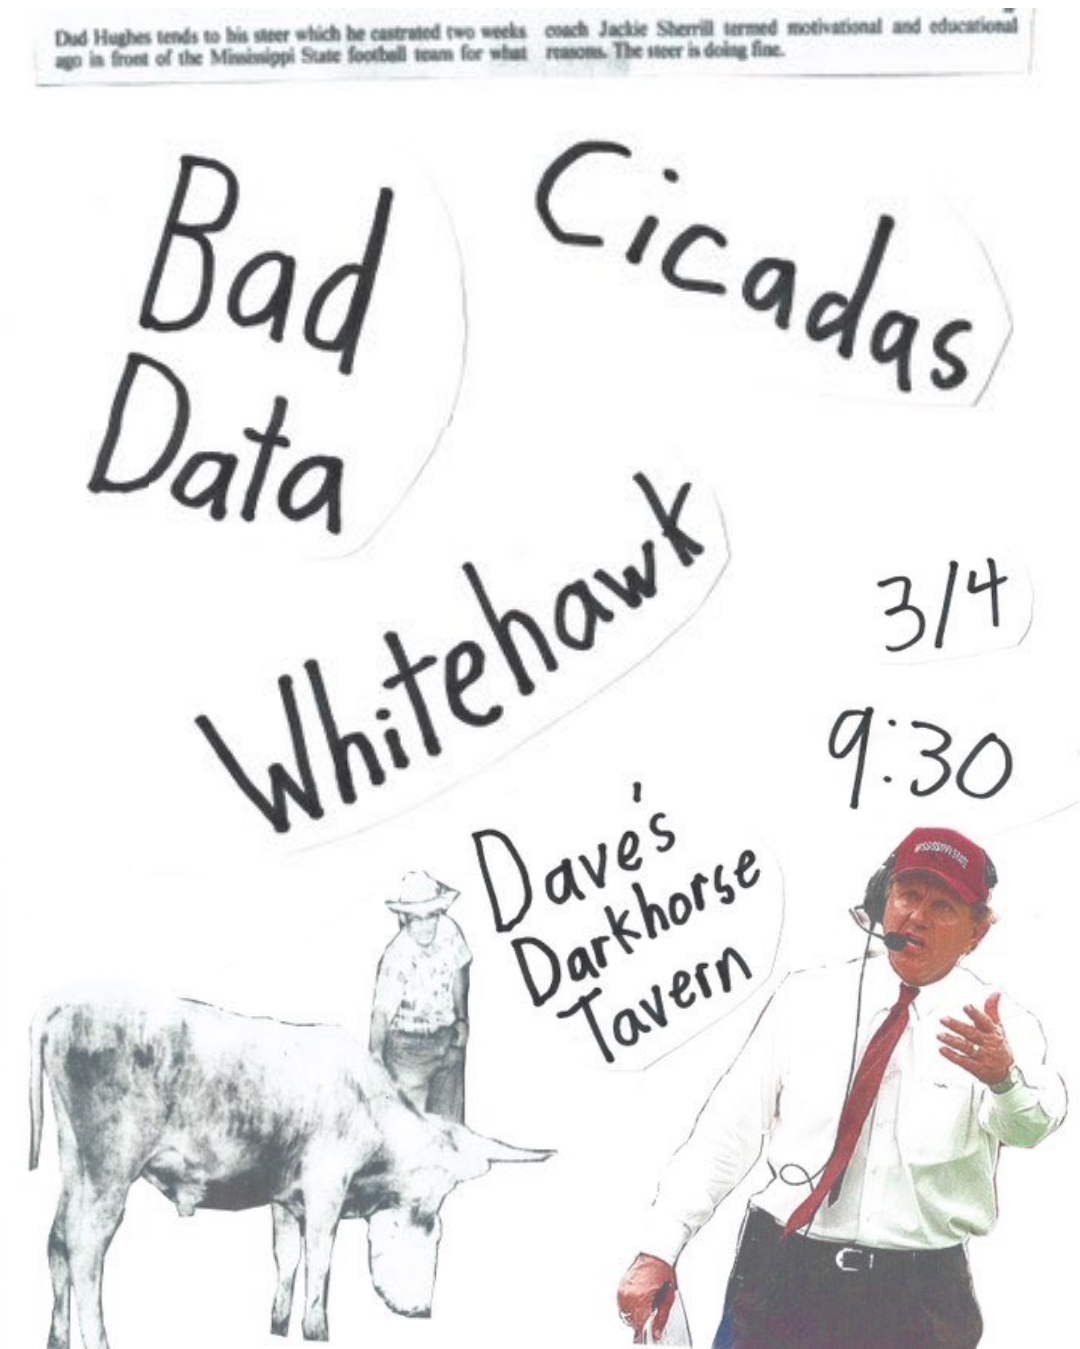 Dud Hughes tends to his steer which he castrated two weeks
ago in front of the Mississippi State football team for what
coach Jackie Sherrill termed motivational and educational
reasons. The steer is doing fine.
Bad
Data
Cicadas
Whitehawk
3/4
9:30
Dave's
Darkhorse
Tavern
MISSISSIPPI STATE